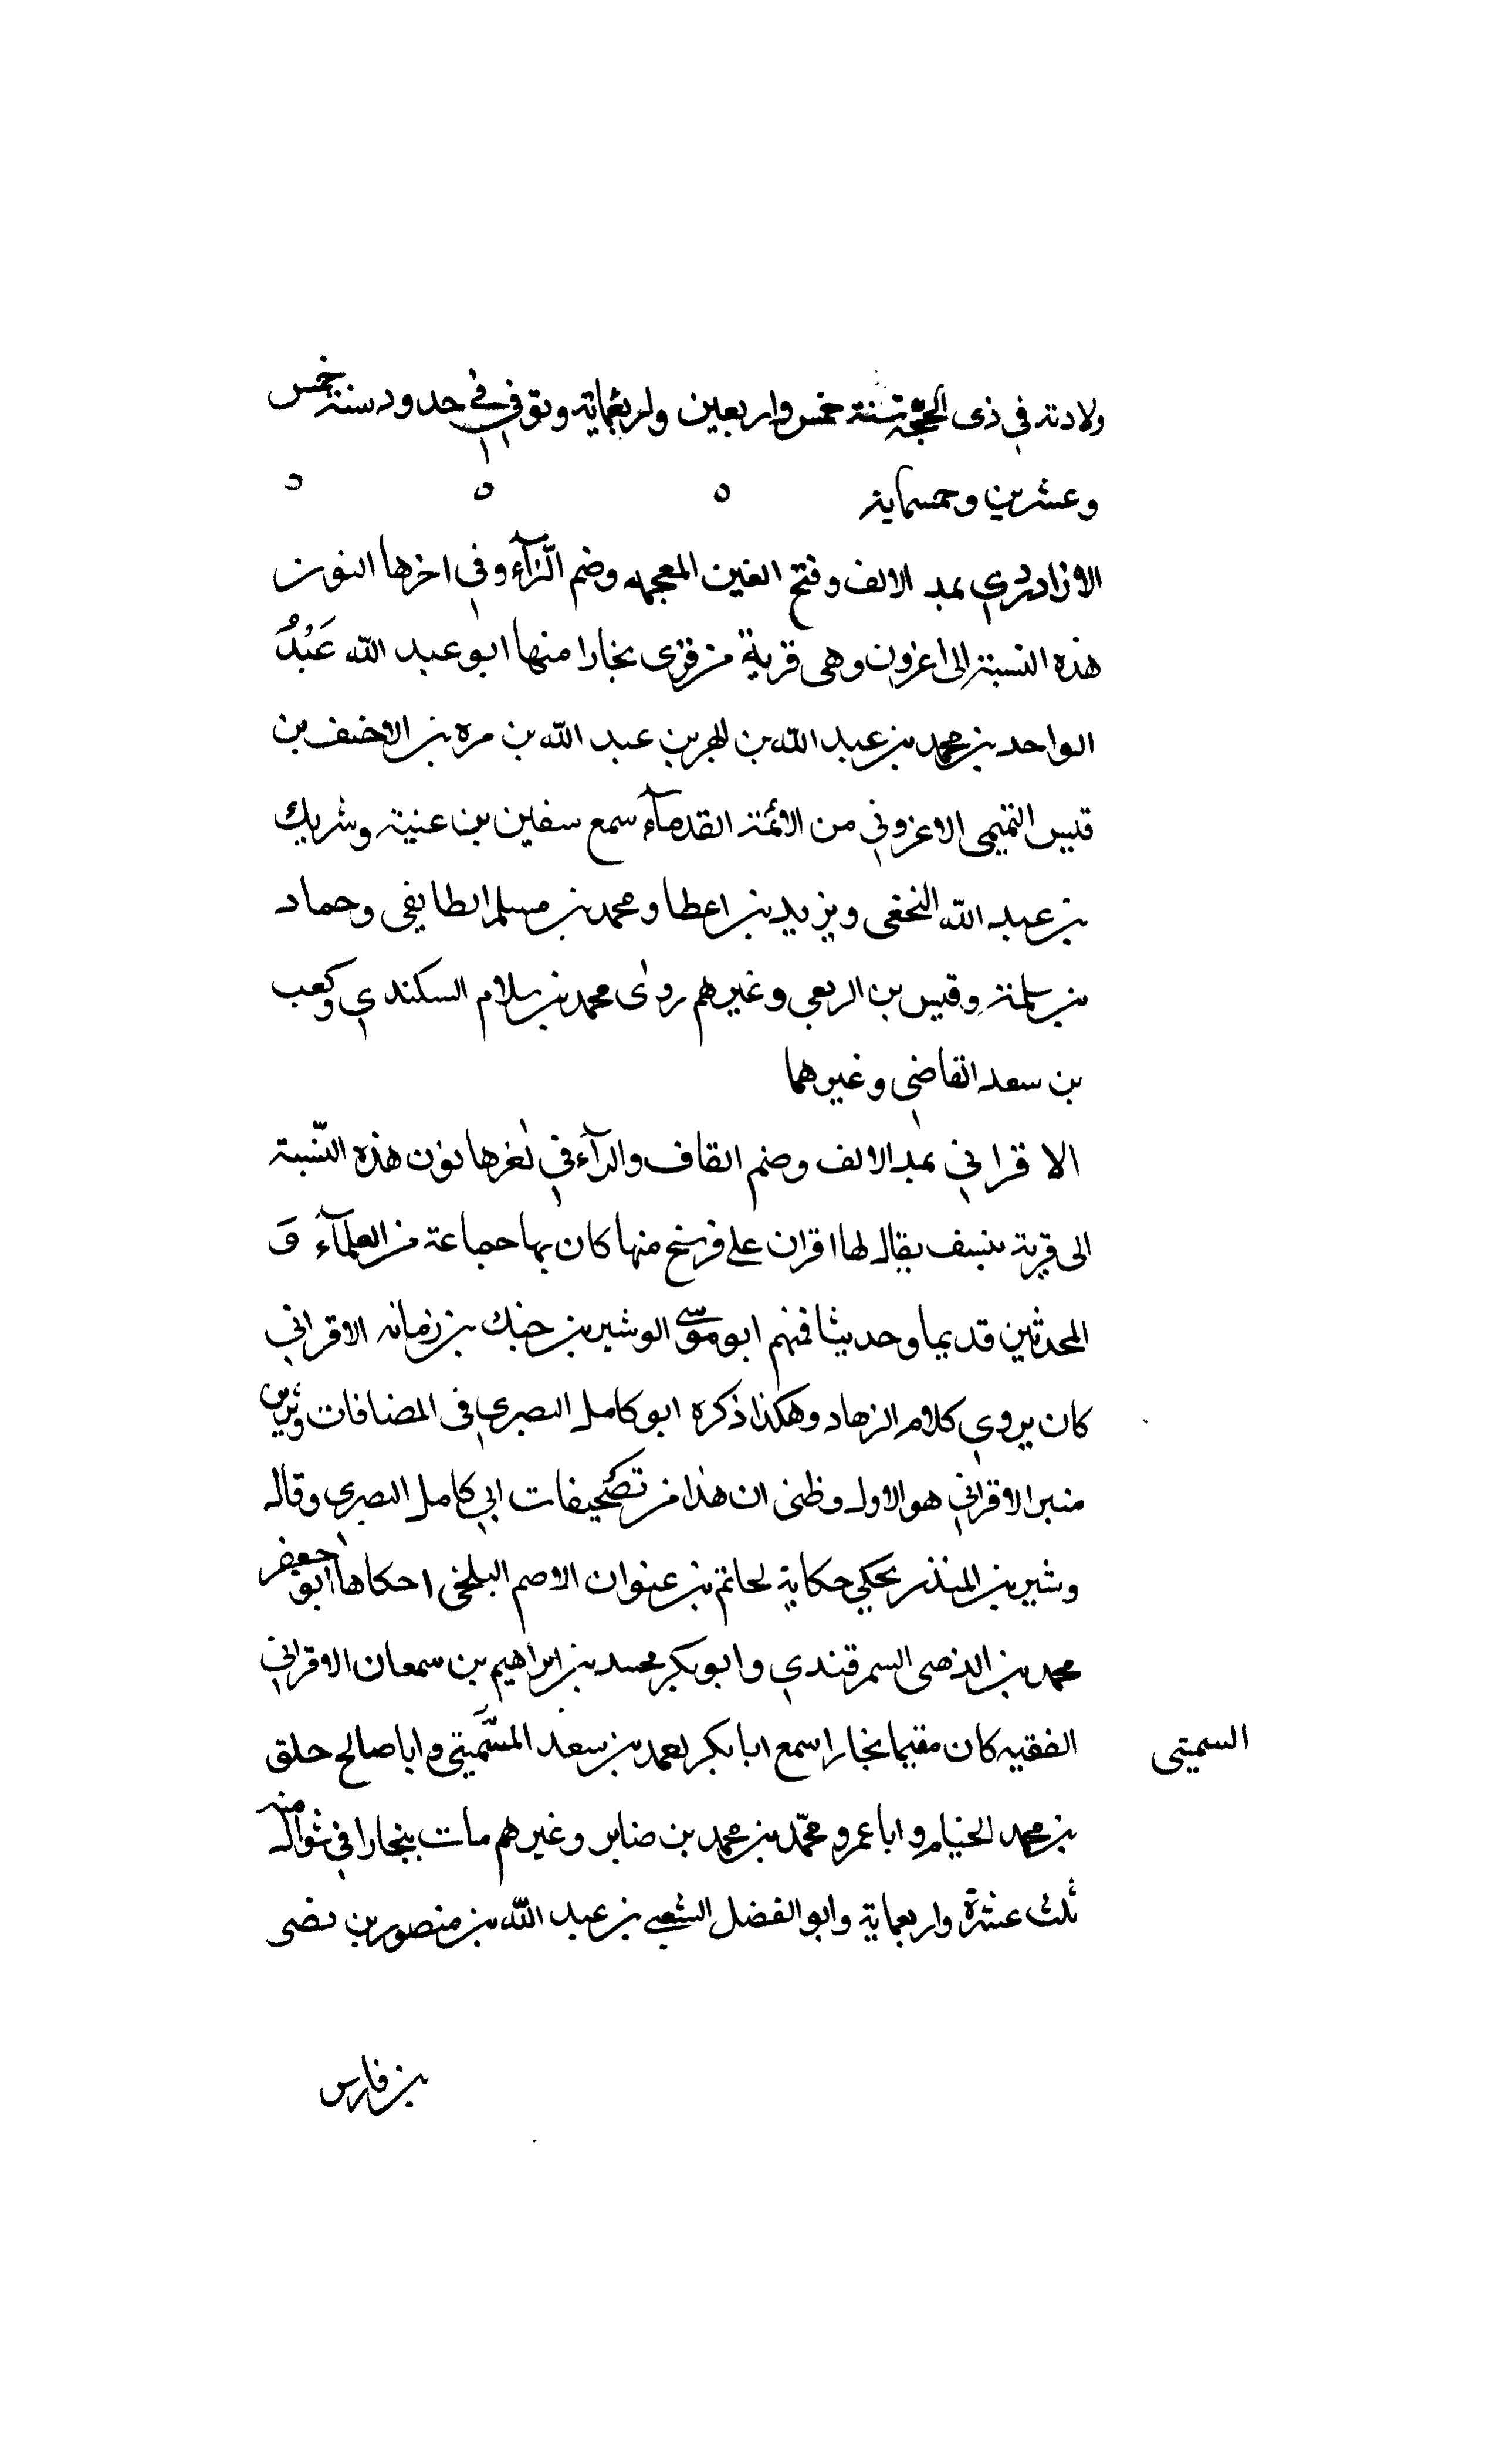 ولادته في ذى الحجّة سنة خمس واربعين ولربعماية وتوفي في حدود سنة خمس
وعشرين وخمسماية
الازادىري بمد الالف وفتح الغين المعجمه وضم الرّآء وفي اخرها النون
هذه النسبة الى اغزون وهى قرية من قرى بخارا منها ابو عبد الله عَبْدُ
الواحد بن محمد بن عبد الله بن عبد الله بن مره بن الاحنف بن
قيس التميمى الاغزوني من الائمة القدمآء سمع سفين بن عنية وشريك
بن عبد الله النخعى ويزيد بن اعطا ومحمد بن مسلم الطايفى وحماد
بن سلمة وقيس بن الربعى وغيرهم روى محمد بن سلام السكندي وكعب
بن سعد القاضى وغيرهما
الاقرانى بمد الالف وضم القاف والرآء في اخرها نون هذه النّسبة
الى قرية بنسف يقال لها اقران على فرسخ منها كان بها جماعة من العلمآء وَ
المحدثين قديما وحديثا فمنهم ابو موسى الوشير بن حنبك بن زمانه الاقرانى
كان يروي كلام الزهاد وهكذا ذكره ابو كامل البصري في المضافات
منبر الاقراني هو الاول وظنى ان هذا من تصحيفات ابي كامل البصري وقال
وشير بن المنذر يحكي حكاية لحاتم بن عنوان الاصم البلخى احكاها ابو جعفر
محمد بن الذهبى السمرقندي وابو بكر محمد بن ابراهيم بن سمعان الاقراني
الفقيه كان مقيما بخارا سمع ابا بكر لعمد بن سعد المسّميتى وابا صالح خلق
السميتى
بن محمد الخيام وابا عمرو محمّد بن محمد بن صابر وغيرهم مات ببخارا في شوال سنة
ثلث عشرة واربعماية وابو الفضل الشعبى بن عبد الله بن منصور بن نصى
بن فارس